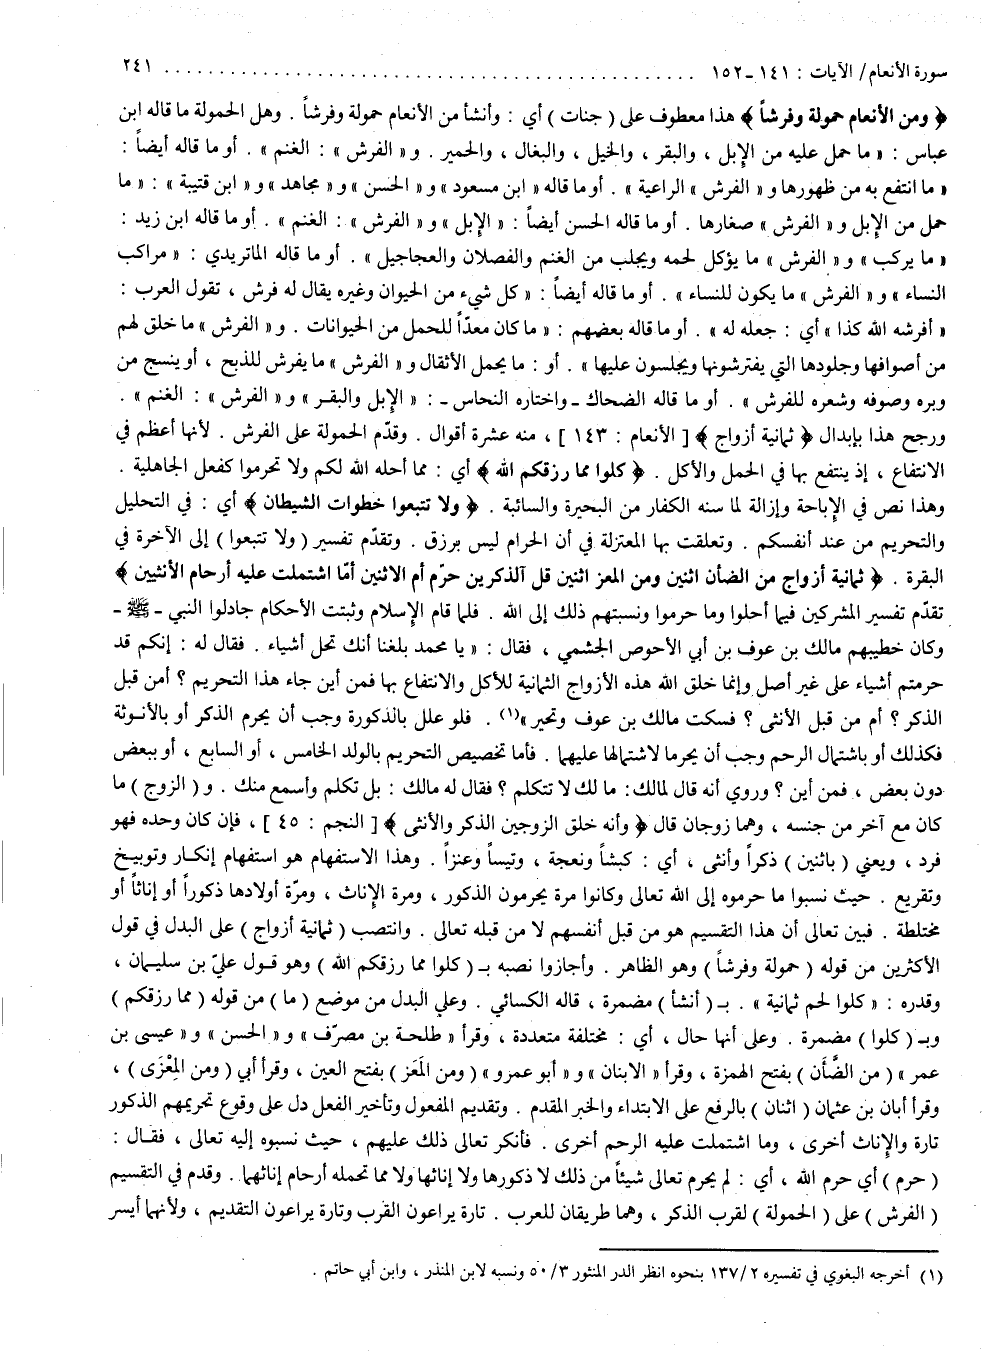 سورة الأنعام/ الآيات : ١٤١-١٥٢ ............................................ ٢٤١
﴿ ومن الأنعام حمولة وفرشاً ﴾ هذا معطوف على ( جنات ) أي : وأنشأ من الأنعام حمولة وفرشاً . وهل الحمولة ما قاله ابن
عباس : « ما حمل عليه من الإبل ، والبقر ، والخيل ، والبغال ، والحمير . و« الفرش » : الغنم » . أو ما قاله أيضاً :
« ما انتفع به من ظهورها و« الفرش » الراعية » . أو ما قاله « ابن مسعود » و« الحسن » و« مجاهد » و« ابن قتيبة » : « ما
حمل من الإبل و« الفرش » صغارها . أو ما قاله الحسن أيضاً : « الإبل » و« الفرش » : الغنم » . أو ما قاله ابن زيد :
« ما يركب » و« الفرش » ما يؤكل لحمه ويجلب من الغنم والفصلان والعجاجيل » . أو ما قاله الماتريدي : « مراكب
النساء » و« الفرش » ما يكون للنساء » . أو ما قاله أيضاً : « كل شيء من الحيوان وغيره يقال له فرش ، تقول العرب :
« أفرشه الله كذا » أي : جعله له » . أو ما قاله بعضهم : « ما كان معدّاً للحمل من الحيوانات . و« الفرش » ما خلق لهم
من أصوافها وجلودها التي يفترشونها ويجلسون عليها » . أو : ما يحمل الأثقال و« الفرش » ما يفرش للذبح ، أو ينسج من
وبره وصوفه وشعره للفرش » . أو ما قاله الضحاك ـ واختاره النحاس ـ : « الإبل والبقر » و« الفرش » : الغنم » .
ورجح هذا بإبدال ﴿ ثمانية أزواج ﴾ [ الأنعام : ١٤٣ ] ، منه عشرة أقوال . وقدّم الحمولة على الفرش . لأنها أعظم في
الانتفاع ، إذ ينتفع بها في الحمل والأكل . ﴿ كلوا مما رزقكم الله ﴾ أي : مما أحله الله لكم ولا تحرموا كفعل الجاهلية .
وهذا نص في الإباحة وإزالة لما سنه الكفار من البحيرة والسائبة . ﴿ ولا تتبعوا خطوات الشيطان ﴾ أي : في التحليل
والتحريم من عند أنفسكم . وتعلقت بها المعتزلة في أن الحرام ليس برزق . وتقدّم تفسير ( ولا تتبعوا ) إلى الآخرة في
البقرة . ﴿ ثمانية أزواج من الضأن اثنين ومن المعز اثنين قل آلذكرين حرّم أم الاثنين أمّا اشتملت عليه أرحام الأنثيين ﴾
تقدّم تفسير المشركين فيما أحلوا وما حرموا ونسبتهم ذلك إلى الله . فلما قام الإسلام وثبتت الأحكام جادلوا النبي - ﷺ -
وكان خطيبهم مالك بن عوف بن أبي الأحوص الجشمي ، فقال : « يا محمد بلغنا أنك تحل أشياء . فقال له : إنكم قد
حرمتم أشياء على غير أصل وإنما خلق الله هذه الأزواج الثمانية للأكل والانتفاع بها فمن أين جاء هذا التحريم ؟ أمن قبل
الذكر ؟ أم من قبل الأنثى ؟ فسكت مالك بن عوف وتحير »(١) . فلو علل بالذكورة وجب أن يحرم الذكر أو بالأنوثة
فكذلك أو باشتمال الرحم وجب أن يحرما لاشتمالها عليهما . فأما تخصيص التحريم بالولد الخامس ، أو السابع ، أو ببعض
دون بعض ، فمن أين ؟ وروي أنه قال لمالك : ما لك لا تتكلم ؟ فقال له مالك : بل تكلم وأسمع منك . و( الزوج ) ما
كان مع آخر من جنسه ، وهما زوجان قال ﴿ وأنه خلق الزوجين الذكر والأنثى ﴾ [ النجم : ٤٥ ] ، فإن كان وحده فهو
فرد ، ويعني ( باثنين ) ذكراً وأنثى ، أي : كبشاً ونعجة ، وتيساً وعنزاً . وهذا الاستفهام هو استفهام إنكار وتوبيخ
وتقريع . حيث نسبوا ما حرموه إلى الله تعالى وكانوا مرة يحرمون الذكور ، ومرة الإناث ، ومرّة أولادها ذكوراً أو إناثاً أو
مختلطة . فبين تعالى أن هذا التقسيم هو من قبل أنفسهم لا من قبله تعالى . وانتصب ( ثمانية أزواج ) على البدل في قول
الأكثرين من قوله ( حمولة وفرشاً ) وهو الظاهر . وأجازوا نصبه بـ ( كلوا مما رزقكم الله ) وهو قول عليّ بن سليمان ،
وقدره : « كلوا لحم ثمانية » . بـ ( أنشأ ) مضمرة ، قاله الكسائي . وعلي البدل من موضع ( ما ) من قوله ( مما رزقكم )
وبـ ( كلوا ) مضمرة . وعلى أنها حال ، أي : مختلفة متعددة ، وقرأ « طلحة بن مصرّف » و« الحسن » و« عيسى بن
عمر » ( من الضَّأَن ) بفتح الهمزة ، وقرأ « الابنان » و« أبو عمرو » ( ومن المَعَز ) بفتح العين ، وقرأ أبي ( ومن المِعْزَى ) ،
وقرأ أبان بن عثمان ( اثنان ) بالرفع على الابتداء والخبر المقدم . وتقديم المفعول وتأخير الفعل دل على وقوع تحريمهم الذكور
تارة والإناث أخرى ، وما اشتملت عليه الرحم أخرى . فأنكر تعالى ذلك عليهم ، حيث نسبوه إليه تعالى ، فقال :
( حرم ) أي حرم الله ، أي : لم يحرم تعالى شيئاً من ذلك لا ذكورها ولا إناثها ولا مما تحمله أرحام إناثهما . وقدم في التقسيم
( الفرش ) على ( الحمولة ) لقرب الذكر ، وهما طريقان للعرب . تارة يراعون القرب وتارة يراعون التقديم ، ولأنهما أيسر
(١) أخرجه البغوي في تفسيره ١٣٧/٢ بنحوه انظر الدر المنثور ٥٠/٣ ونسبه لابن المنذر ، وابن أبي حاتم .